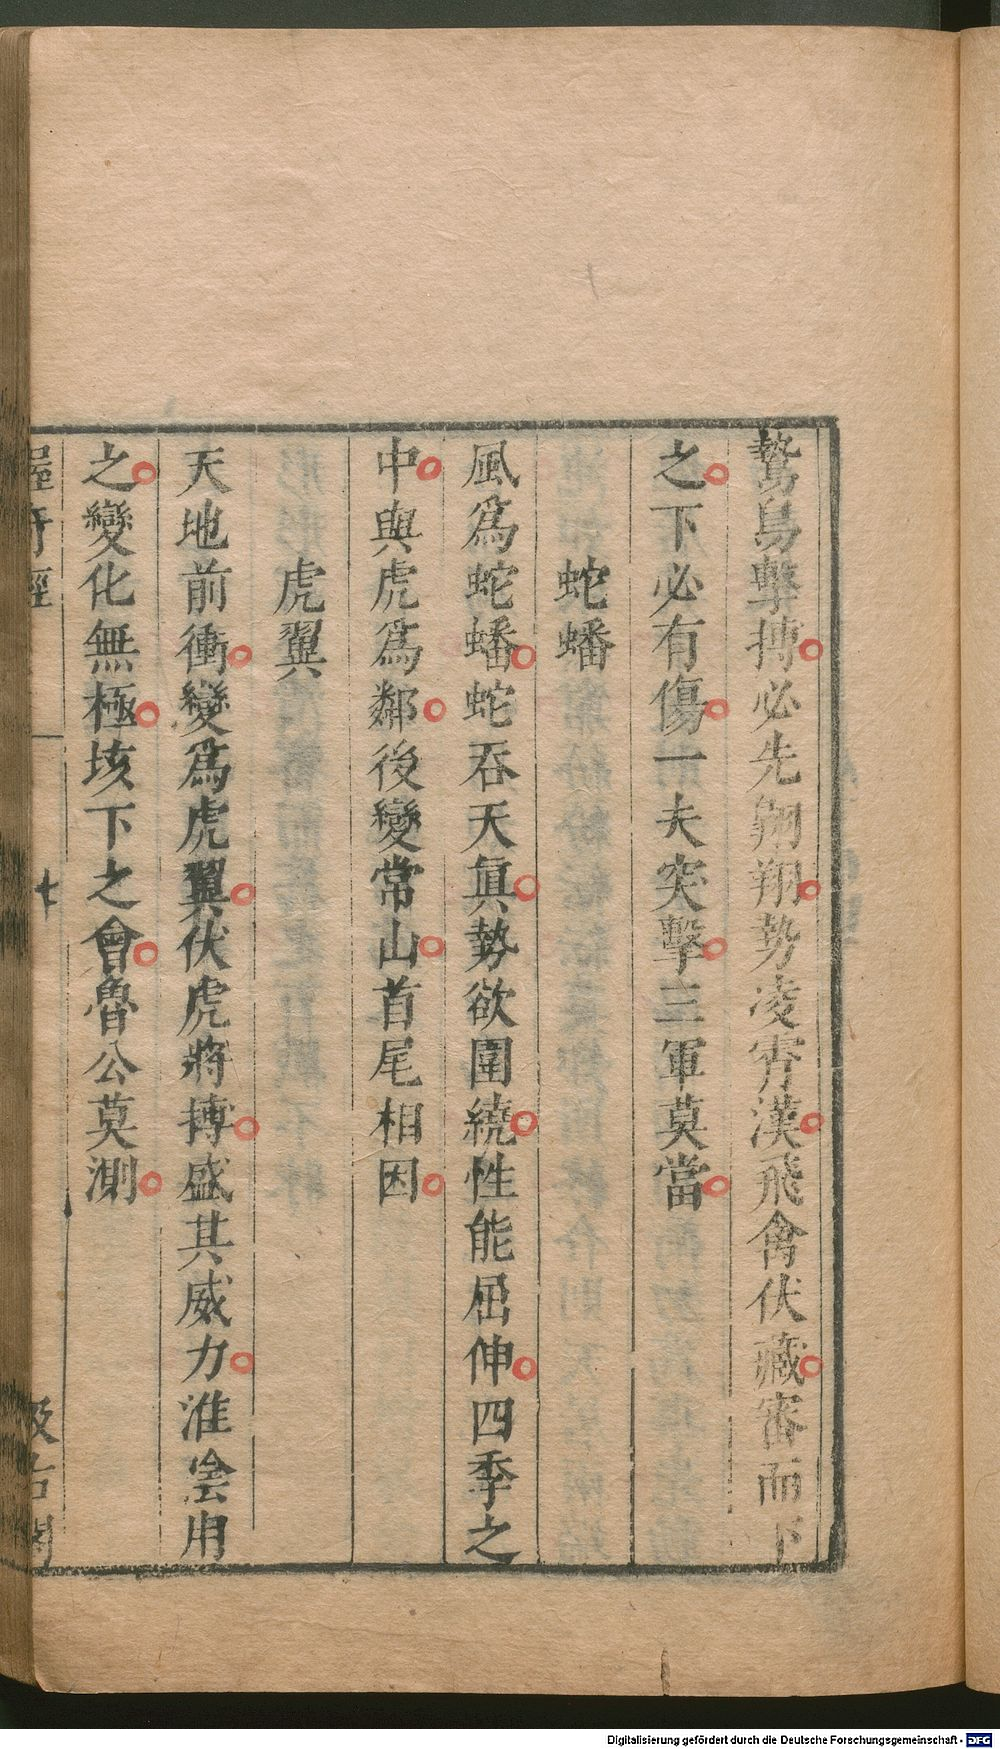 鷙鳥擊搏必先翱翔勢凌霄漢飛禽伏藏審而下
之下必有傷一夫突擊三軍莫當
蛇蟠
風爲蛇蟠蛇吞天眞勢欲圍繞性能屈伸四季之
中與虎爲鄰後變常山首尾相因
虎翼
天地前衝變爲虎翼伏虎將搏盛其威力淮陰用
之變化無極垓下之會魯公莫測
握奇經
七
汲古閣
Digitalisierung gefördert durch die Deutsche Forschungsgemeinschaft - DFG